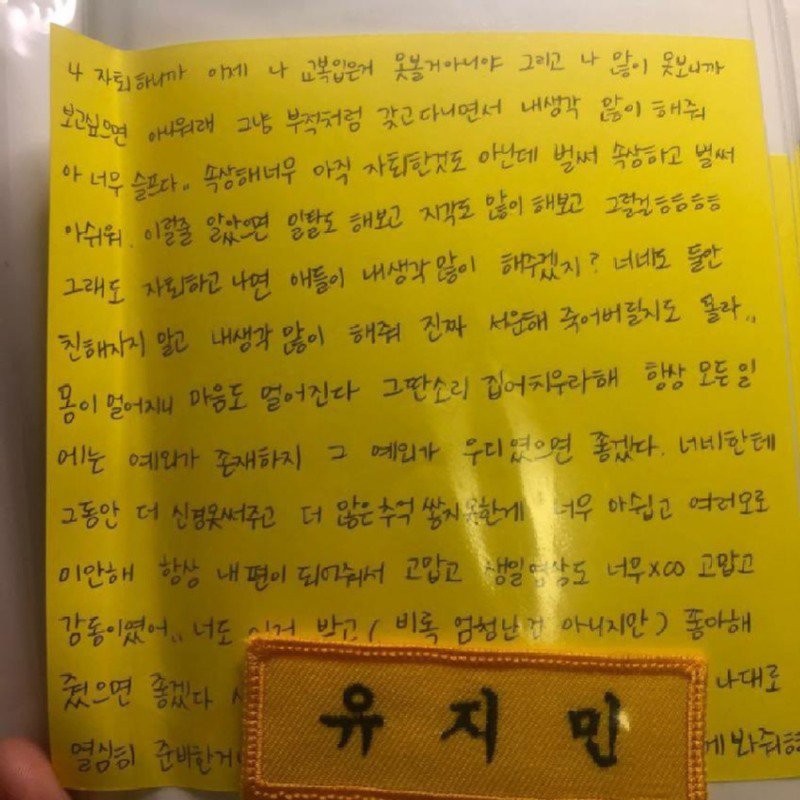 나 자퇴하니까 이제 나 교복입은거 못볼거아니야 그리고 나 많이 못보니까
보고싶으면 아쉬워래 그냥 부적처럼 갖고다니면서 내생각 많이 해줘
아 너무 슬프다.. 속상해너무 아직 자퇴한것도 아닌데 벌써 속상하고 벌써
아쉬워. 이럴줄 알았으면 일탈도 해보고 지각도 많이 해보고 그럴걸ㅎㅎㅎㅎ
그래도 자퇴하고 나면 애들이 내생각 많이 해주겠지? 너네도 둘만
친해지지 말고 내생각 많이 해줘 진짜 서운해 죽어버릴지도 몰라..
몸이 멀어지니 마음도 멀어진다 그딴소리 집어치우라해 항상 모든 일
에는 예외가 존재하지 그 예외가 우리였으면 좋겠다. 너네한테
그동안 더 신경못써주고 더 많은 추억 쌓지못한게 너무 아쉽고 여러모로
미안해 항상 내편이 되어줘서 고맙고 생일영상도 너무x∞ 고맙고
감동이였어.. 너도 이거 받고 (비록 엄청난건 아니지만) 좋아해
줬으면 좋겠다 나대로
열심히 준비한거 게 봐줘ㅎㅎ
유지민